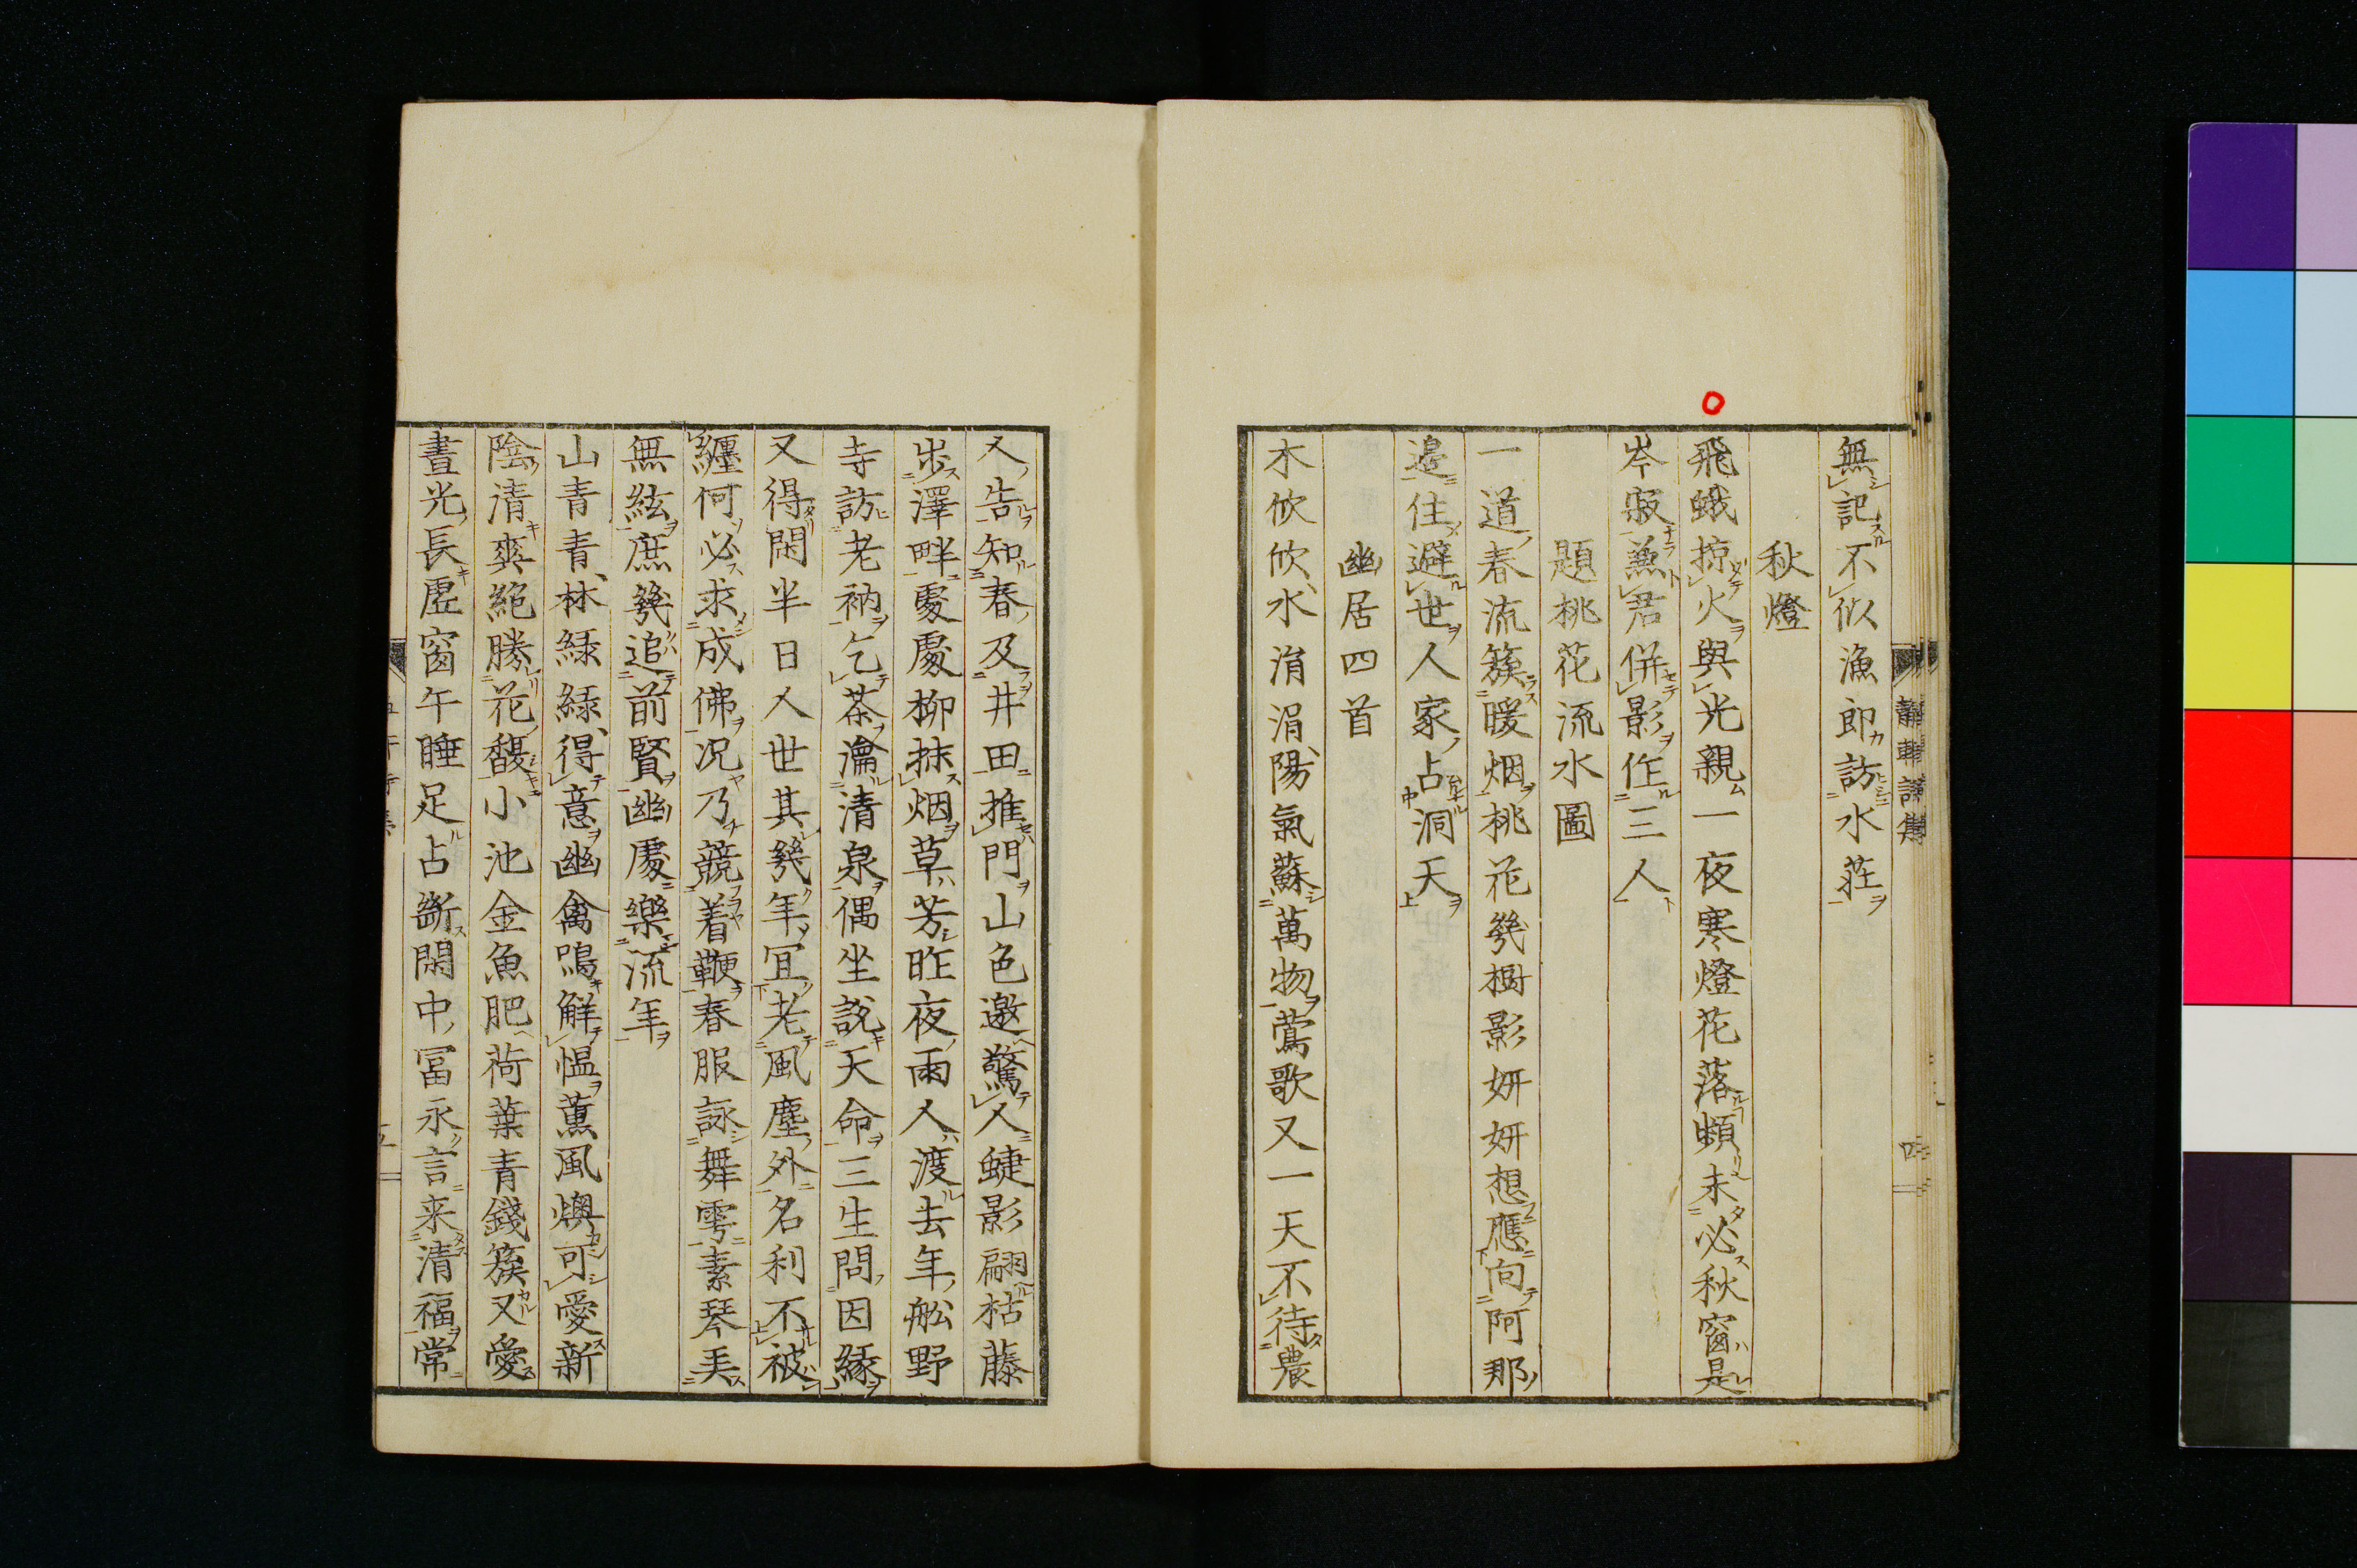 無記不似漁郎訪水莊
秋燈
飛蛾掠火與光親一夜寒燈花落頻未必秋窗是
岑寂兼君併影作三人
題桃花流水圖
一道春流簇暖烟桃花幾樹影妍妍想應向阿那
邉住避世人家占洞天
幽居四首
木欣欣水涓涓陽氣蘇萬物鶯歌又一天不待農
人告知春及井田推門山色邀驚人蜨影翩枯藤
步澤畔處處柳抹烟草芳昨夜雨人渡去年舩野
寺訪老衲乞茶瀹清泉偶坐説天命三生問因縁
又得閑半日人世其幾年冝老風塵外名利不被
纏何必求成佛况乃競着鞭春服詠舞雩素琴美
無絃庶幾追前賢幽處樂流年
山青青林緑緑得意幽禽鳴解慍薫風燠可愛新
陰清爽絶勝花馥小池金魚肥荷葉青錢簇又愛
晝光長虚窗午睡足占斷閑中冨永言来清福常